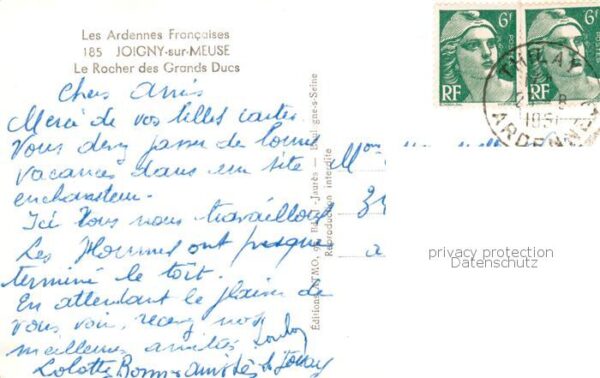 Les Ardennes Françaises
185 JOIGNY-sur-MEUSE
Le Rocher des Grands Ducs
Chers Amis
Merci de vos belles cartes.
Vous devez passer de bonnes
vacances dans un site
enchanteur.
Ici Nous nous travaillons
Les Hommes ont presque
terminé le toit.
En attendant le plaisir de
vous voir, recevez nos
meilleures amitiés
Lolotte Bons amitiés de
Éditions Jaurès — Boulogne-s-Seine
Reproduction interdite
6F
6F
POSTES
RF
RF
THILAY
8
1951
ARDENNES
privacy protection
Datenschutz